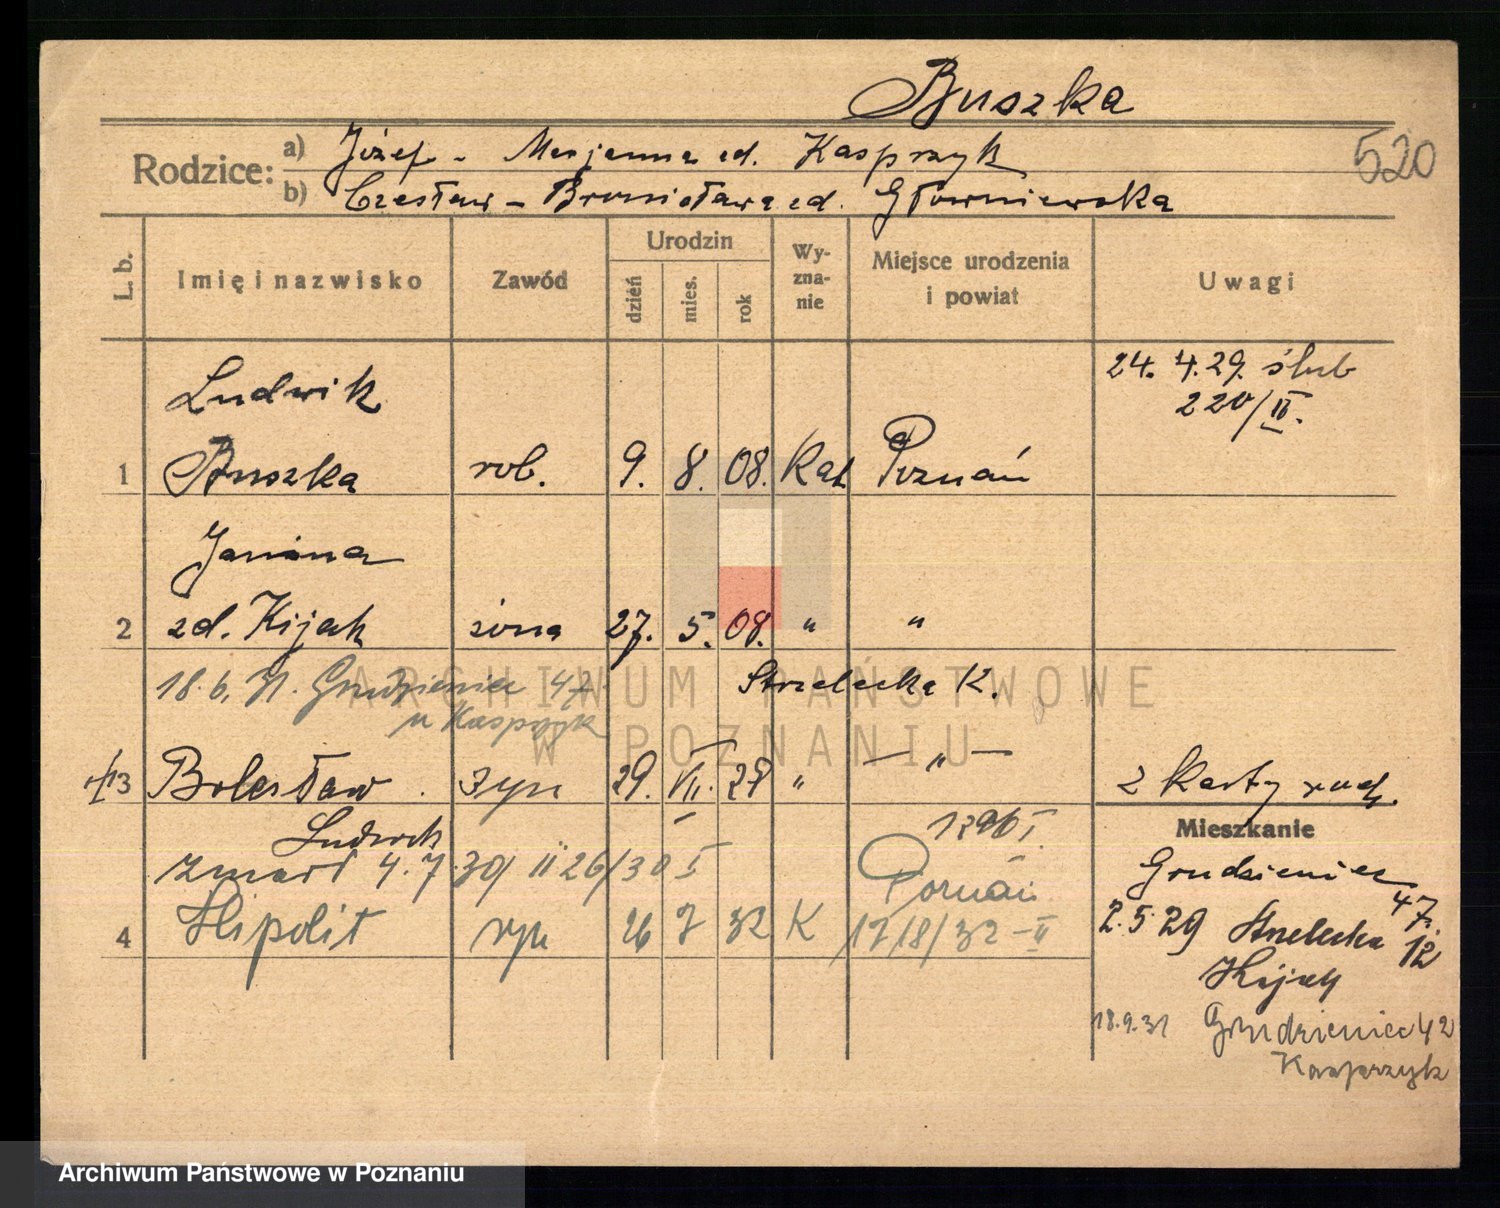 Buszka
520
Rodzice:
a) Józef - Marjanna zd. Kasprzyk
b) Czesław - Bronisława zd. Głowniewska
L. b.
Imię i nazwisko
Zawód
Urodzin
dzień
mies.
rok
Wy-
zna-
nie
Miejsce urodzenia
i powiat
Uwagi
24. 4. 29. ślub
220/II.
Ludwik
1 Buszka rob. 9. 8. 08. Kat Poznań
Janina
2 zd. Kijak żona 27. 5. 08. " "
18.6.31. Grudzieniec 47
u Kasprzyk
Strzelecka K.
3 Bolesław syn 29. VII. 28 " — " —
2 karty
Ludwik
1296 I
zmarł 4.7.30/ II 26/30 I
Poznań
4 Hipolit syn 26 7 32 K 1718/32 - II
Mieszkanie
Grudzieniec
47.
2.5.29 Strzelecka 12
Kijak
18.9.31 Grudzieniec 42
Kasprzyk
ARCHIWUM PAŃSTWOWE
W POZNANIU
Archiwum Państwowe w Poznaniu